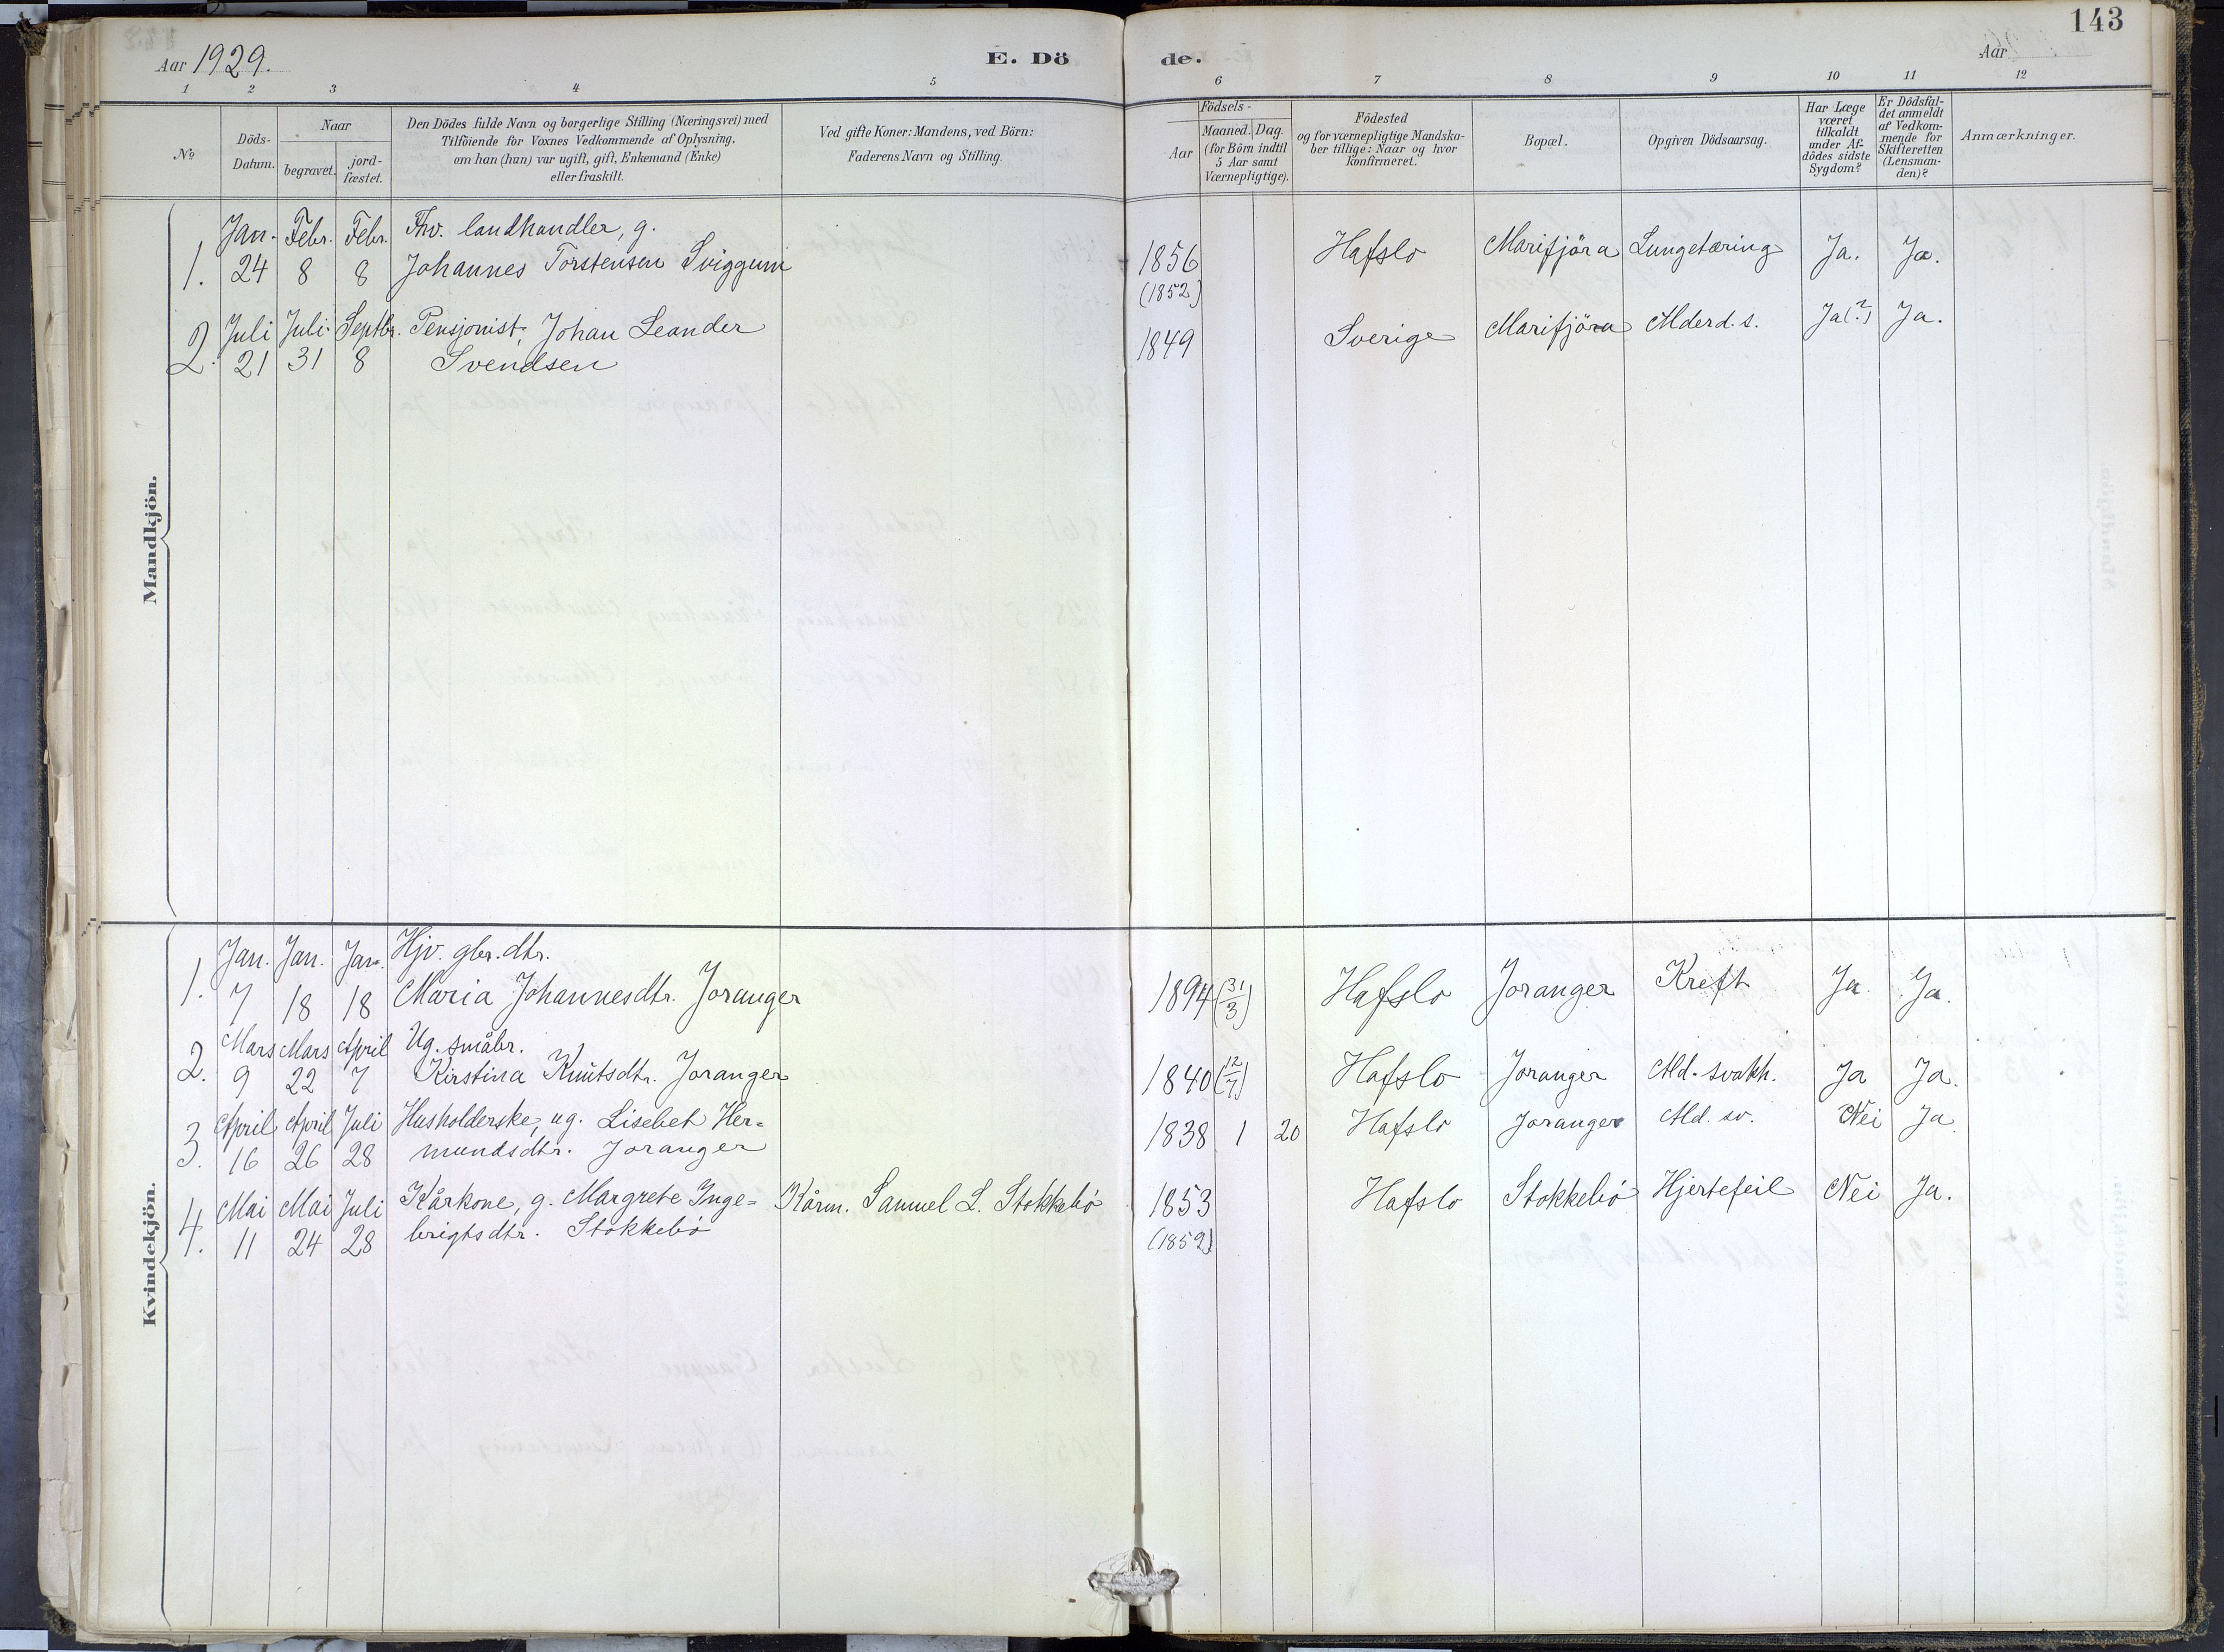 143
Aar 1929. E. Dö de. Aar
1 2 3 4 5 6 7 8 9 10 11 12
No
Döds-
Datum.
Naar
begravet.
jord-
fæstet.
Den Dödes fulde Navn og borgerlige Stilling (Næringsvei) med
Tilföiende for Voxnes Vedkommende af Oplysning,
om han (hun) var ugift, gift, Enkemand (Enke)
eller fraskilt.
Ved gifte Koner: Mandens, ved Börn:
Faderens Navn og Stilling.
Födsels-
Aar
Maaned. Dag.
(for Börn indtil
5 Aar samt
Værnepligtige).
Födested
og for værnepligtige Mandska-
ber tillige: Naar og hvor
konfirmeret.
Bopæl.
Opgiven Dödsaarsag.
Har Læge
været
tilkaldt
under Af-
dödes sidste
Sygdom?
Er Dödsfal-
det anmeldt
af Vedkom-
mende for
Skifteretten
(Lensman-
den)?
Anmærkninger.
Mandkjön.
Jan. Febr. Febr. Fhv. landhandler, g.
1. 24 8 8 Johannes Torstensen Sviggum 1856 Hafslo Marifjöra Lungetæring Ja. Ja.
(1852)
Juli Juli Septbr. Pensjonist, Johan Leander
2. 21 31 8 Svendsen 1849 Sverige Marifjöra Alderd. s. Ja(?) Ja.
Kvindekjön.
Jan. Jan. Jan. Hjv. gbr. dtr.
1. 7 18 18 Maria Johannesdtr. Joranger 1894 (31/3) Hafslo Joranger Kreft Ja. Ja.
Mars Mars April Ug. småbr.
2. 9 22 7 Kirstina Knutsdtr. Joranger 1840 (12/7) Hafslo Joranger Ald. svakh. Ja Ja.
April April Juli Husholderske, ug. Lisebet Her=
3. 16 26 28 mundsdtr. Joranger 1838 1 20 Hafslo Joranger Ald. sv. Nei Ja
Mai Mai Juli Kårkone, g. Margrete Inge= Kårm. Samuel L. Stokkebö 1853 Hafslo Stokkebö Hjertefeil Nei Ja.
4. 11 24 28 brigtsdtr. Stokkebö (1859)